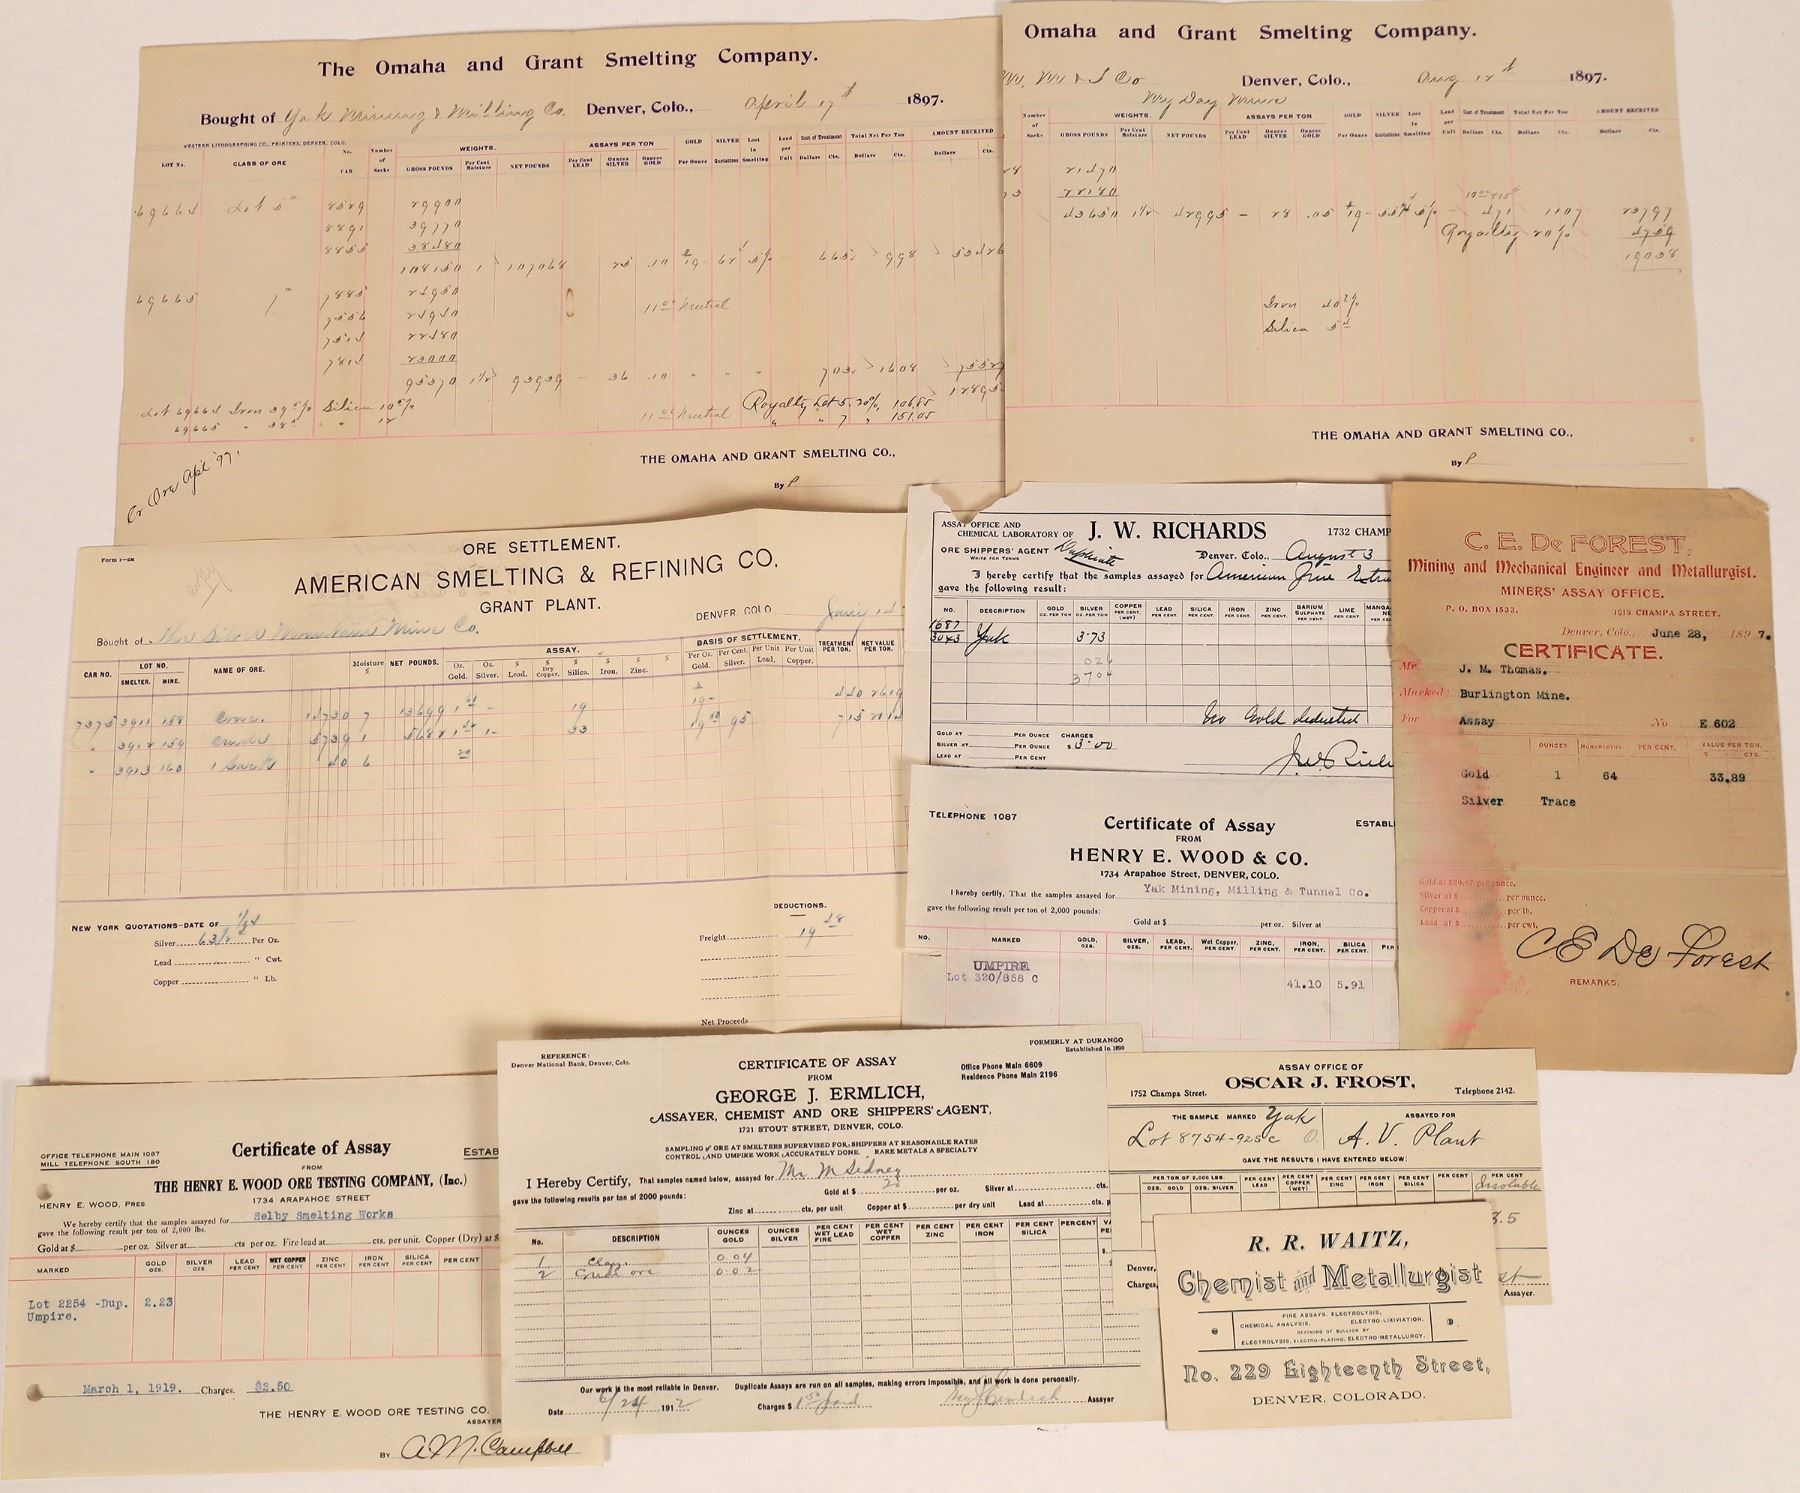 The Omaha and Grant Smelting Company.
Bought of Yak Mining & Milling Co. Denver, Colo., April 17th 1897.
WESTERN LITHOGRAPHING CO., PRINTERS, DENVER, COLO.
LOT No. CLASS OF ORE No. CAR Number of Sacks WEIGHTS. GROSS POUNDS Per Cent Moisture NET POUNDS ASSAYS PER TON Per Cent LEAD Ounces SILVER Ounces GOLD GOLD Per Ounce SILVER Quotations Lost in Smelting Lead per Unit Cost of Treatment Dollars Cts. Total Net Per Ton Dollars Cts. AMOUNT RECEIVED Dollars Cts.
69664 Lot 5 8529 29900
8891 39770
8855 38480
108150 1 107068 - 25 .10 $19- 62 5% 665 998 53426
69665 7 7885 24950
11 00 Neutral
7556 24940
22480
7814 23000
95370 1 1/2 93939 - 36 .10 " " " 703 1608 75527
Lot 69664 Iron 39 Silica 10 %
11 00 Neutral Royalty Lot 5. 20%, 106.85
69665 " 38 " 12 " " 7 " 151.05
Or Ore Apl '97.
THE OMAHA AND GRANT SMELTING CO.,
By P
Omaha and Grant Smelting Company.
Denver, Colo., Aug 12th 1897.
My Day Mine
Number of Sacks WEIGHTS. GROSS POUNDS Per Cent Moisture NET POUNDS ASSAYS PER TON Per Cent LEAD Ounces SILVER Ounces GOLD GOLD Per Ounce SILVER Quotations Lost in Smelting Lead per Unit Cost of Treatment Dollars Cts. Total Net Per Ton Dollars Cts. AMOUNT RECEIVED Dollars Cts.
21470
22180
43650 1 1/2 42995 - 28 .05 $19- 5% - 471 1107 23797
Royalty 20% 4759
19038
Iron 40 %
Silica 5
THE OMAHA AND GRANT SMELTING CO.,
By P
Form 1-2M
ORE SETTLEMENT.
AMERICAN SMELTING & REFINING CO.
GRANT PLANT.
DENVER, COLO
Bought of The Silver Mine Co.
CAR NO. LOT NO. SMELTER. MINE. NAME OF ORE. Moisture % NET POUNDS. ASSAY. Oz. Gold. Oz. Silver. % Lead. % Dry Copper. % Silica. % Iron. % Zinc. % BASIS OF SETTLEMENT. Per Oz. Gold. Per Cent. Silver. Per Unit Lead, Per Unit Copper. TREATMENT PER TON. NET VALUE PER TON.
7375 3911 158 Conc. 14730 7 13699 1 - 19 19- 440 2619
" 3912 159 Crude 5739 1 5682 1 1- 33 19 95 715
" 3913 160 1 Sack 40 6
NEW YORK QUOTATIONS-DATE OF
Silver 63 1/2 Per Oz.
Lead " Cwt.
Copper " Lb.
DEDUCTIONS.
Freight 19 48
Net Proceeds
ASSAY OFFICE AND
CHEMICAL LABORATORY OF J. W. RICHARDS 1732 CHAMP
ORE SHIPPERS' AGENT Duplicate
WRITE FOR TERMS
Denver, Colo., August 3
I hereby certify that the samples assayed for American Zinc
gave the following result:
NO. DESCRIPTION GOLD OZ. PER TON SILVER OZ. PER TON COPPER PER CENT. (WET) LEAD PER CENT. SILICA PER CENT. IRON PER CENT. ZINC PER CENT. BARIUM SULPHATE PER CENT. LIME PER CENT.
1687
3043 Yak 3.73
026
3704
No Gold deducted
GOLD AT PER OUNCE CHARGES
SILVER AT PER OUNCE $ 3.00
LEAD AT PER CENT
C. E. De FOREST,
Mining and Mechanical Engineer and Metallurgist.
MINERS' ASSAY OFFICE.
P. O. BOX 1533. 1615 CHAMPA STREET.
Denver, Colo., June 28, 1897.
CERTIFICATE.
Mr J. M. Thomas.
Marked Burlington Mine.
For Assay No E 602
OUNCES HUNDREDTHS PER CENT. VALUE PER TON. $ CTS.
Gold 1 64 33.89
Silver Trace
Gold at $20.67 per ounce.
Silver at $ per ounce.
Copper at $ per lb.
Lead at $ per cwt.
C E De Forest
REMARKS.
TELEPHONE 1087
Certificate of Assay ESTABL
FROM
HENRY E. WOOD & CO.
1734 Arapahoe Street, DENVER, COLO.
I hereby certify, That the samples assayed for Yak Mining, Milling & Tunnel Co.
gave the following result per ton of 2,000 pounds:
Gold at $ per oz. Silver at
NO. MARKED GOLD, OZS. SILVER, OZS. LEAD, PER CENT. Wet Copper, PER CENT. ZINC, PER CENT. IRON, PER CENT. SILICA PER CENT. PER
UMPIRE
Lot 320/858 C 41.10 5.91
OFFICE TELEPHONE MAIN 1087
MILL TELEPHONE SOUTH 180
Certificate of Assay ESTAB
FROM
THE HENRY E. WOOD ORE TESTING COMPANY, (Inc.)
HENRY E. WOOD, PRES
1734 ARAPAHOE STREET
We hereby certify that the samples assayed for Selby Smelting Works
gave the following result per ton of 2,000 lbs.
Gold at $ per oz. Silver at cts per oz. Fire lead at cts. per unit. Copper (Dry) at $
MARKED GOLD OZS. SILVER OZS. LEAD PER CENT WET COPPER PER CENT ZINC PER CENT IRON PER CENT SILICA PER CENT PER CENT
Lot 2254 -Dup. 2.23
Umpire.
March 1, 1919. Charges, $2.50
THE HENRY E. WOOD ORE TESTING CO.
ASSAYER
BY A.M. Campbell
REFERENCE:
Denver National Bank, Denver, Colo.
FORMERLY AT DURANGO
Established in 1896
CERTIFICATE OF ASSAY
FROM
Office Phone Main 6609
Residence Phone Main 2196
GEORGE J. ERMLICH,
ASSAYER, CHEMIST AND ORE SHIPPERS' AGENT,
1721 STOUT STREET, DENVER, COLO.
SAMPLING OF ORE AT SMELTERS SUPERVISED FOR SHIPPERS AT REASONABLE RATES
CONTROL AND UMPIRE WORK ACCURATELY DONE. RARE METALS A SPECIALTY
I Hereby Certify, That samples named below, assayed for Mr M Sidney
gave the following results per ton of 2000 pounds: Gold at $ 20 per oz. Silver at cts. p
Zinc at cts, per unit Copper at $ per dry unit Lead at cts.
No. DESCRIPTION OUNCES GOLD OUNCES SILVER PER CENT WET LEAD FIRE PER CENT WET COPPER PER CENT ZINC PER CENT IRON PER CENT SILICA PER CENT VA PER
1 Clay 0.04
2 Crude ore 0.02
Our work is the most reliable in Denver. Duplicate Assays are run on all samples, making errors impossible, and all work is done personally.
Date 6/24 1912 Charges $ 1 50 paid Geo J Ermlich Assayer
ASSAY OFFICE OF
OSCAR J. FROST,
1752 Champa Street. Telephone 2142.
THE SAMPLE MARKED Yak ASSAYED FOR
Lot 8754-925c A. V. Plant
GAVE THE RESULTS I HAVE ENTERED BELOW:
PER TON OF 2,000 LBS. OZS. GOLD OZS. SILVER PER CENT LEAD PER CENT COPPER (WET) PER CENT ZINC PER CENT IRON PER CENT SILICA PER CENT PER CENT Insoluble
3.5
Denver,
Charges,
Assayer.
R. R. WAITZ,
Chemist and Metallurgist
FIRE ASSAYS, ELECTROLYSIS,
CHEMICAL ANALYSIS, ELECTRO-LIXIVIATION.
REFINING OF BULLION BY
ELECTROLYSIS, ELECTRO-PLATING, ELECTRO-METALLURGY.
No. 229 Eighteenth Street,
DENVER, COLORADO.